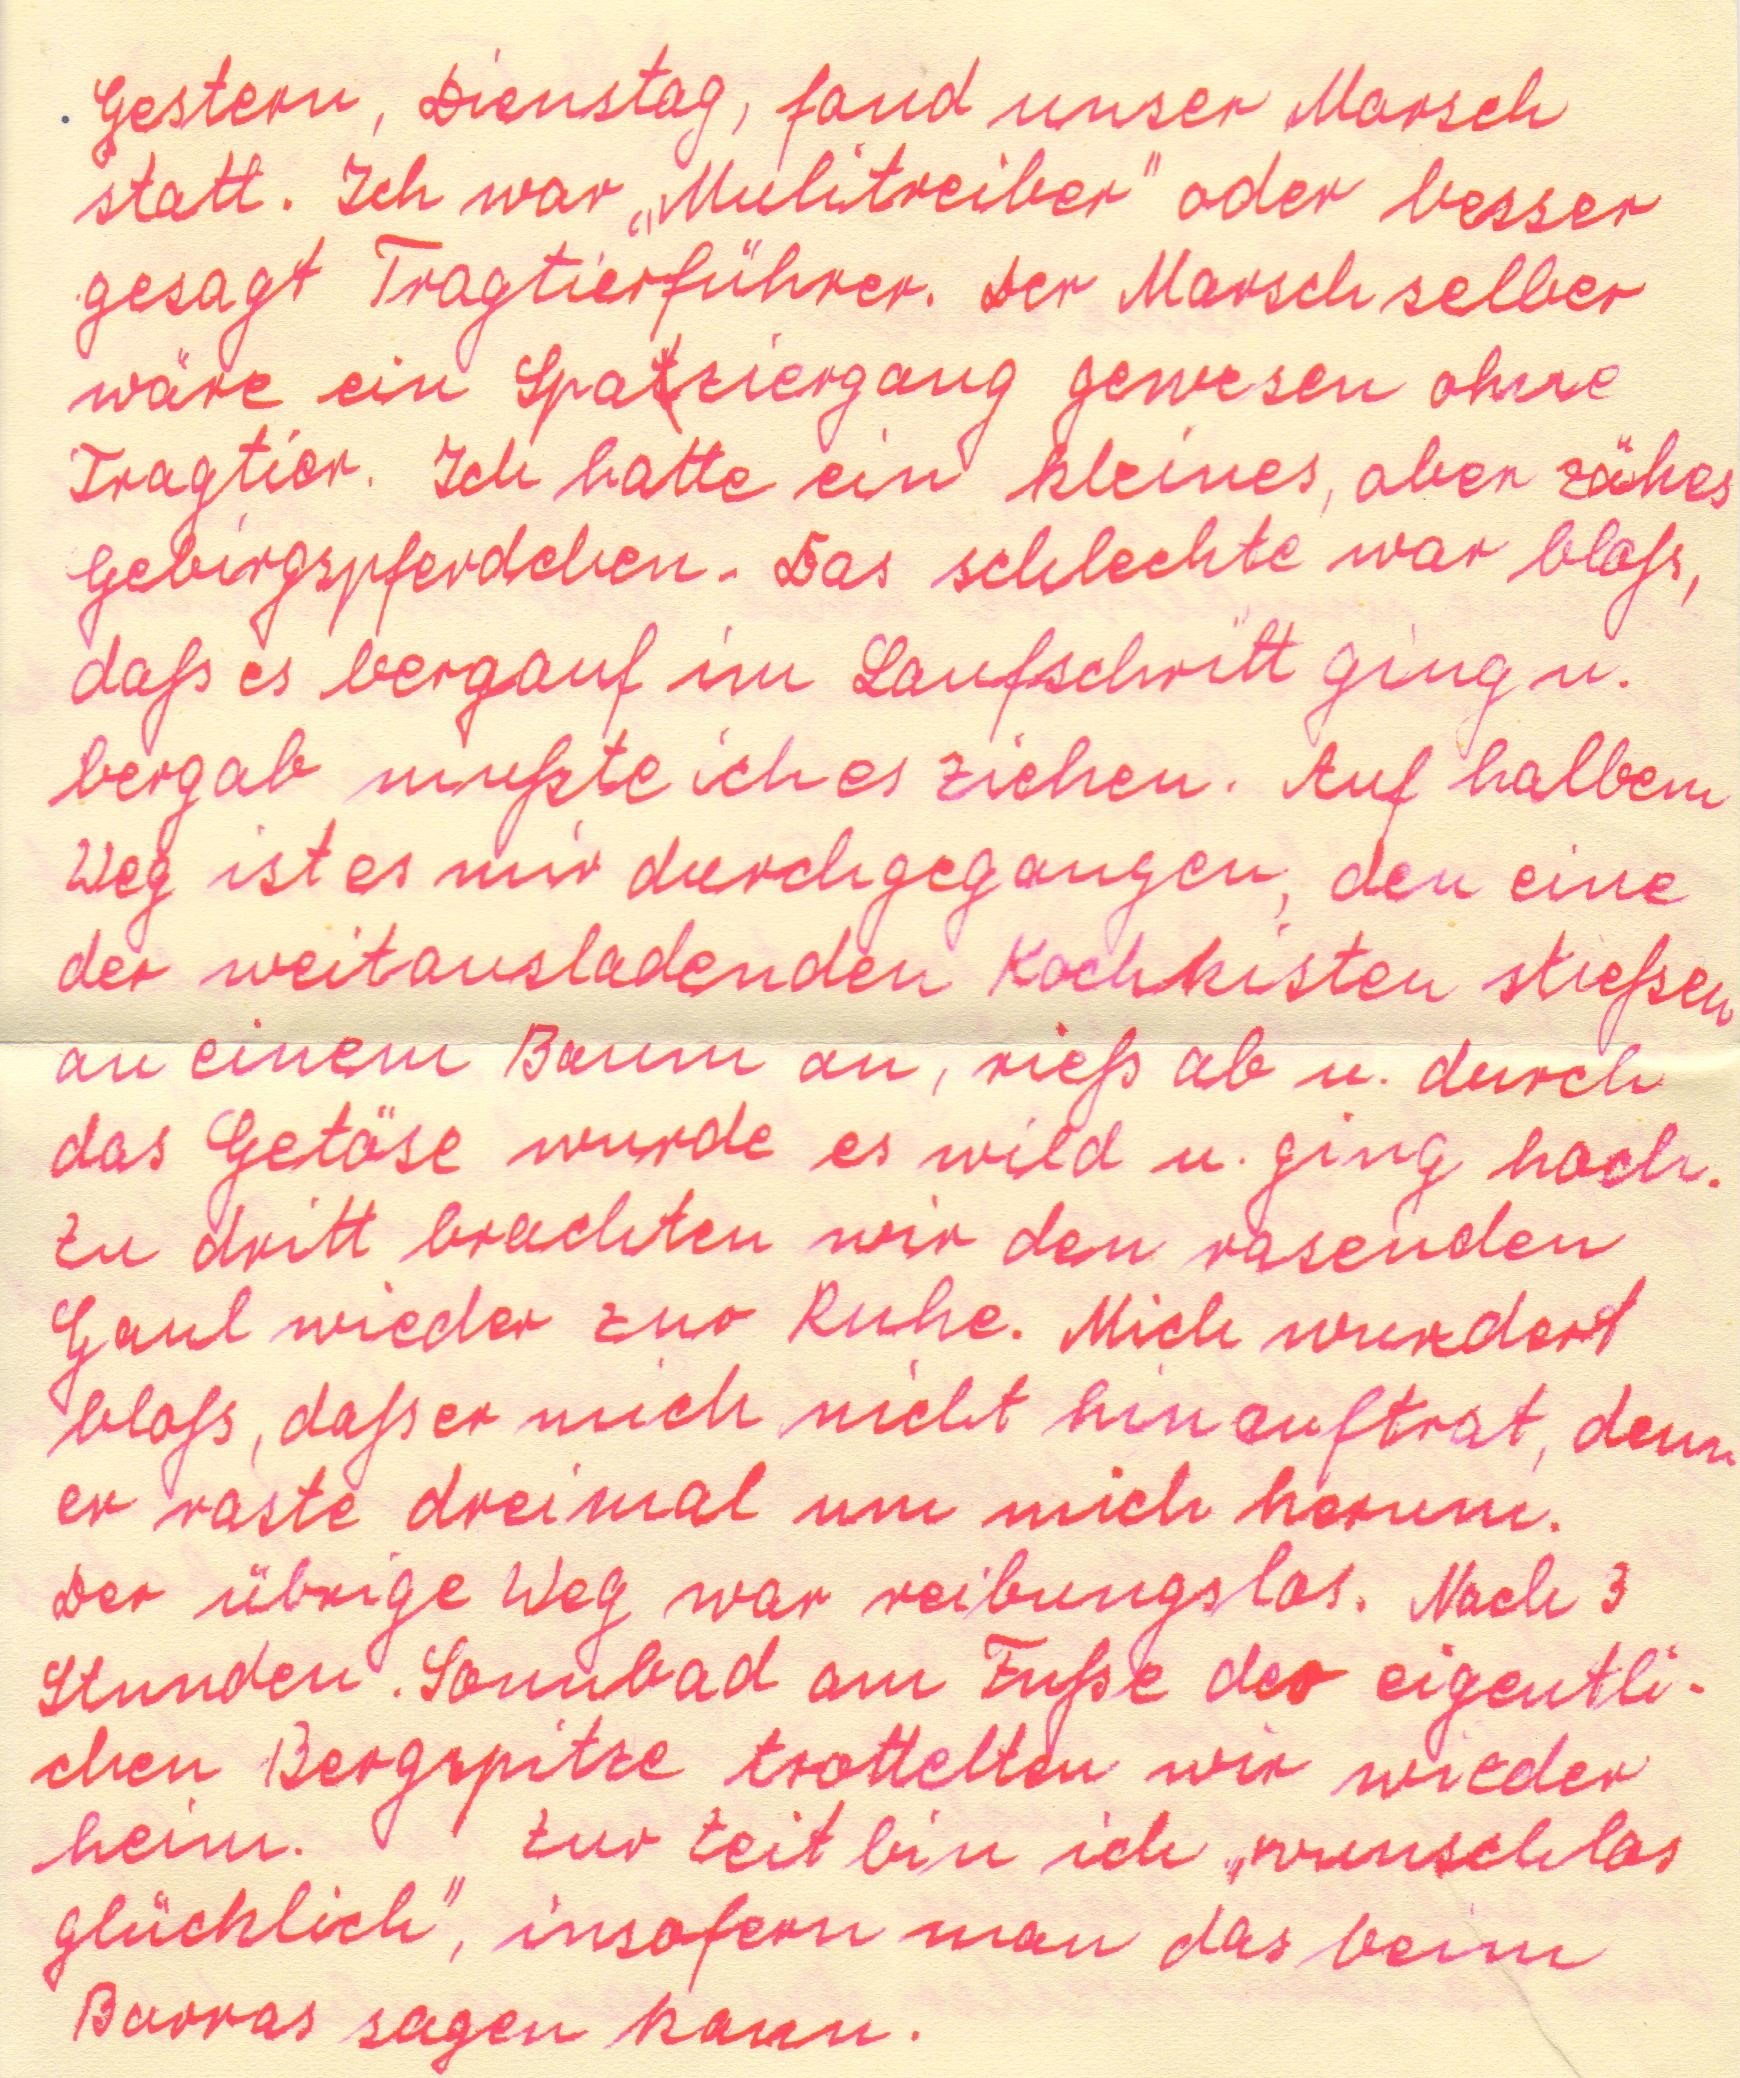 Gestern, Dienstag, fand unser Marsch
statt. Ich war „Mulitreiber" oder besser
gesagt Tragtierführer. Der Marsch selber
wäre ein Spatziergang gewesen ohne
Tragtier. Ich hatte ein kleines, aber zähes
Gebirgspferdchen. Das schlechte war bloß,
daß es bergauf im Laufschritt ging u.
bergab mußte ich es ziehen. Auf halbem
Weg ist es mir durchgegangen, den eine
der weitausladenden Kochkisten stießen
an einem Baum an, rieß ab u. durch
das Getöse wurde es wild u. ging hoch.
Zu dritt brachten wir den rasenden
Gaul wieder zur Ruhe. Mich wundert
bloß, daß er mich nicht hinauftrat, denn
er raste dreimal um mich herum.
Der übrige Weg war reibungslos. Nach 3
Stunden Sonnbad am Fuße der eigentli-
chen Bergspitze trottelten wir wieder
heim. Zur Zeit bin ich „wunschlos
glücklich", insofern man das beim
Barras sagen kann.